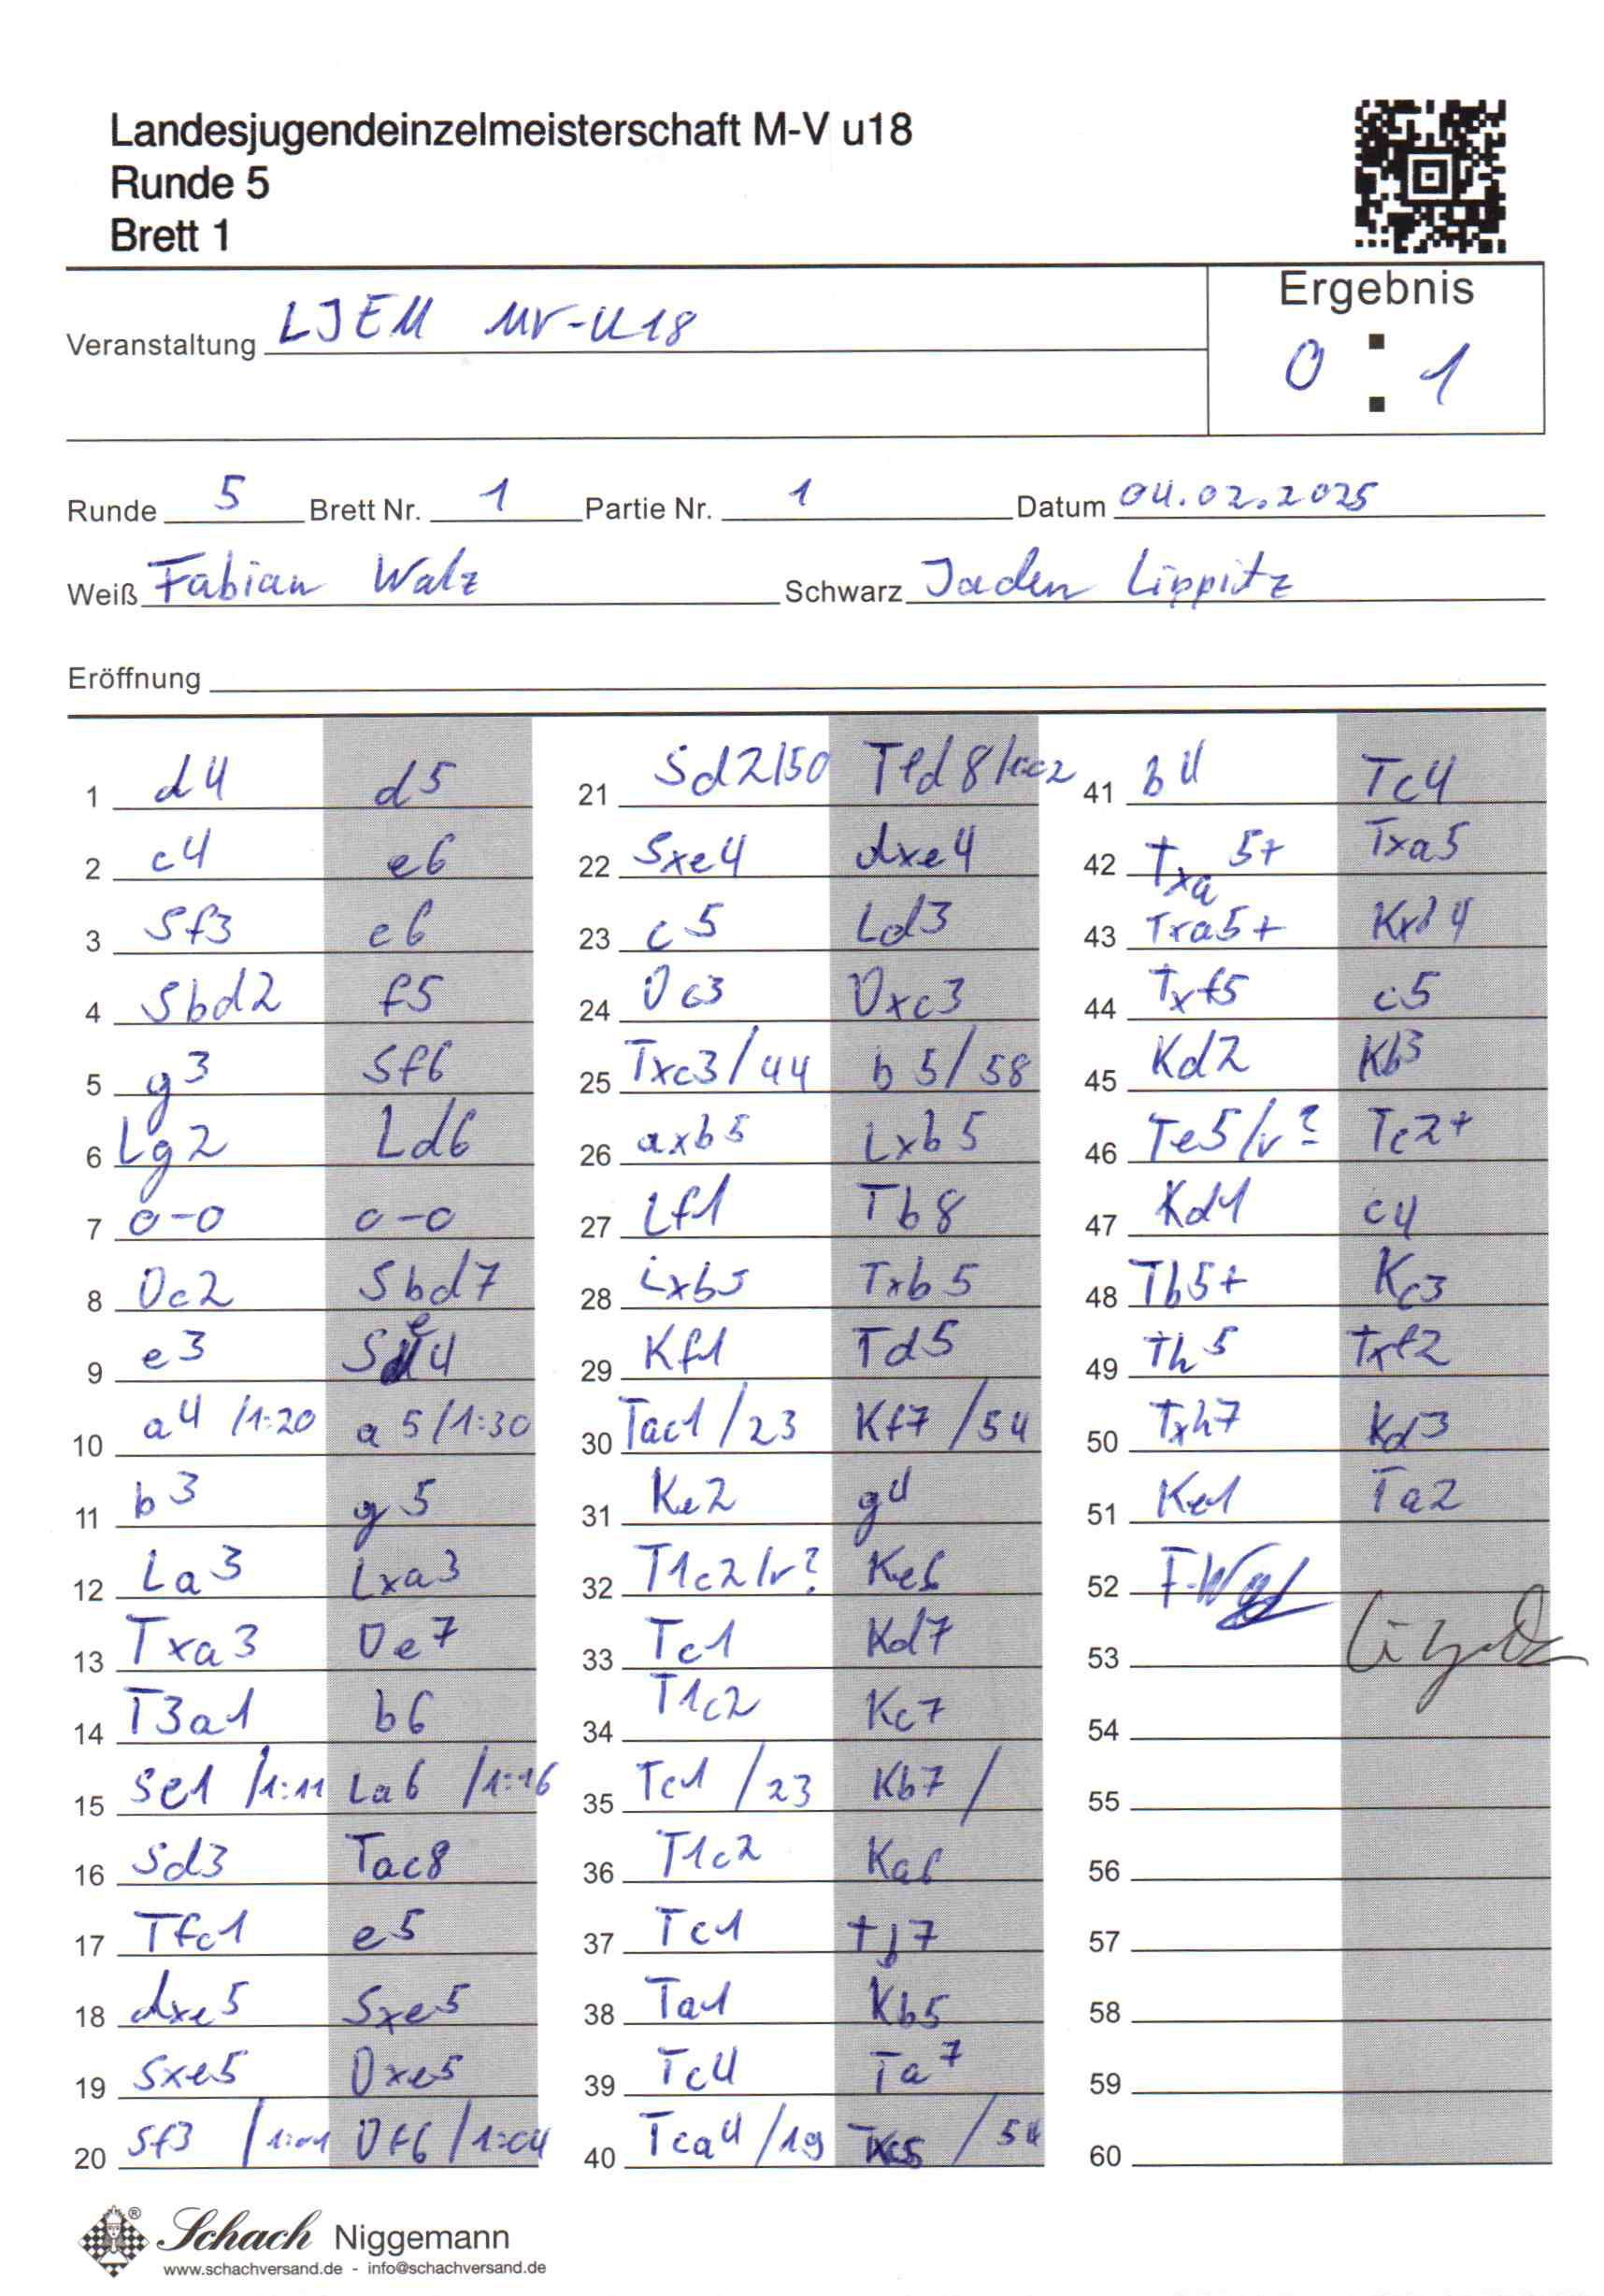 Landesjugendeinzelmeisterschaft M-V u18
Runde 5
Brett 1
Ergebnis
0 : 1
Veranstaltung LJEM MV-U18
Runde 5 Brett Nr. 1 Partie Nr. 1 Datum 04.02.2025
Weiß Fabian Walz Schwarz Jaden Lippitz
Eröffnung
1 d4 d5
2 c4 e6
3 Sf3 c6
4 Sbd2 f5
5 g3 Sf6
6 Lg2 Ld6
7 0-0 0-0
8 Dc2 Sbd7
9 e3 Se4
10 a4 /1:20 a5/1:30
11 b3 g5
12 La3 Lxa3
13 Txa3 De7
14 T3a1 b6
15 Se1 /1:11 La6 /1:16
16 Sd3 Tac8
17 Tfc1 e5
18 dxe5 Sxe5
19 Sxe5 Dxe5
20 Sf3 /1:01 Df6/1:04
21 Sd2/50 Tfd8/1:02
22 Sxe4 dxe4
23 c5 Ld3
24 Dc3 Dxc3
25 Txc3/44 b5/58
26 axb5 Lxb5
27 Lf1 Tb8
28 Lxb5 Txb5
29 Kf1 Td5
30 Tac1/23 Kf7/54
31 Ke2 g4
32 T1c2/r? Ke6
33 Tc1 Kd7
34 T1c2 Kc7
35 Tc1 /23 Kb7 /
36 T1c2 Ka6
37 Tc1 Tb7
38 Ta1 Kb5
39 Tc4 Ta7
40 Tca4/19 Txc5 /54
41 b4 Tc4
42 Txa5+ Txa5
43 Txa5+ Kxb4
44 Txf5 c5
45 Kd2 Kb3
46 Te5/r? Tc2+
47 Kd1 c4
48 Tb5+ Kc3
49 Th5 Txf2
50 Txh7 Kd3
51 Ke1 Ta2
52 F. Walz
53
54
55
56
57
58
59
60
Schach Niggemann
www.schachversand.de - info@schachversand.de